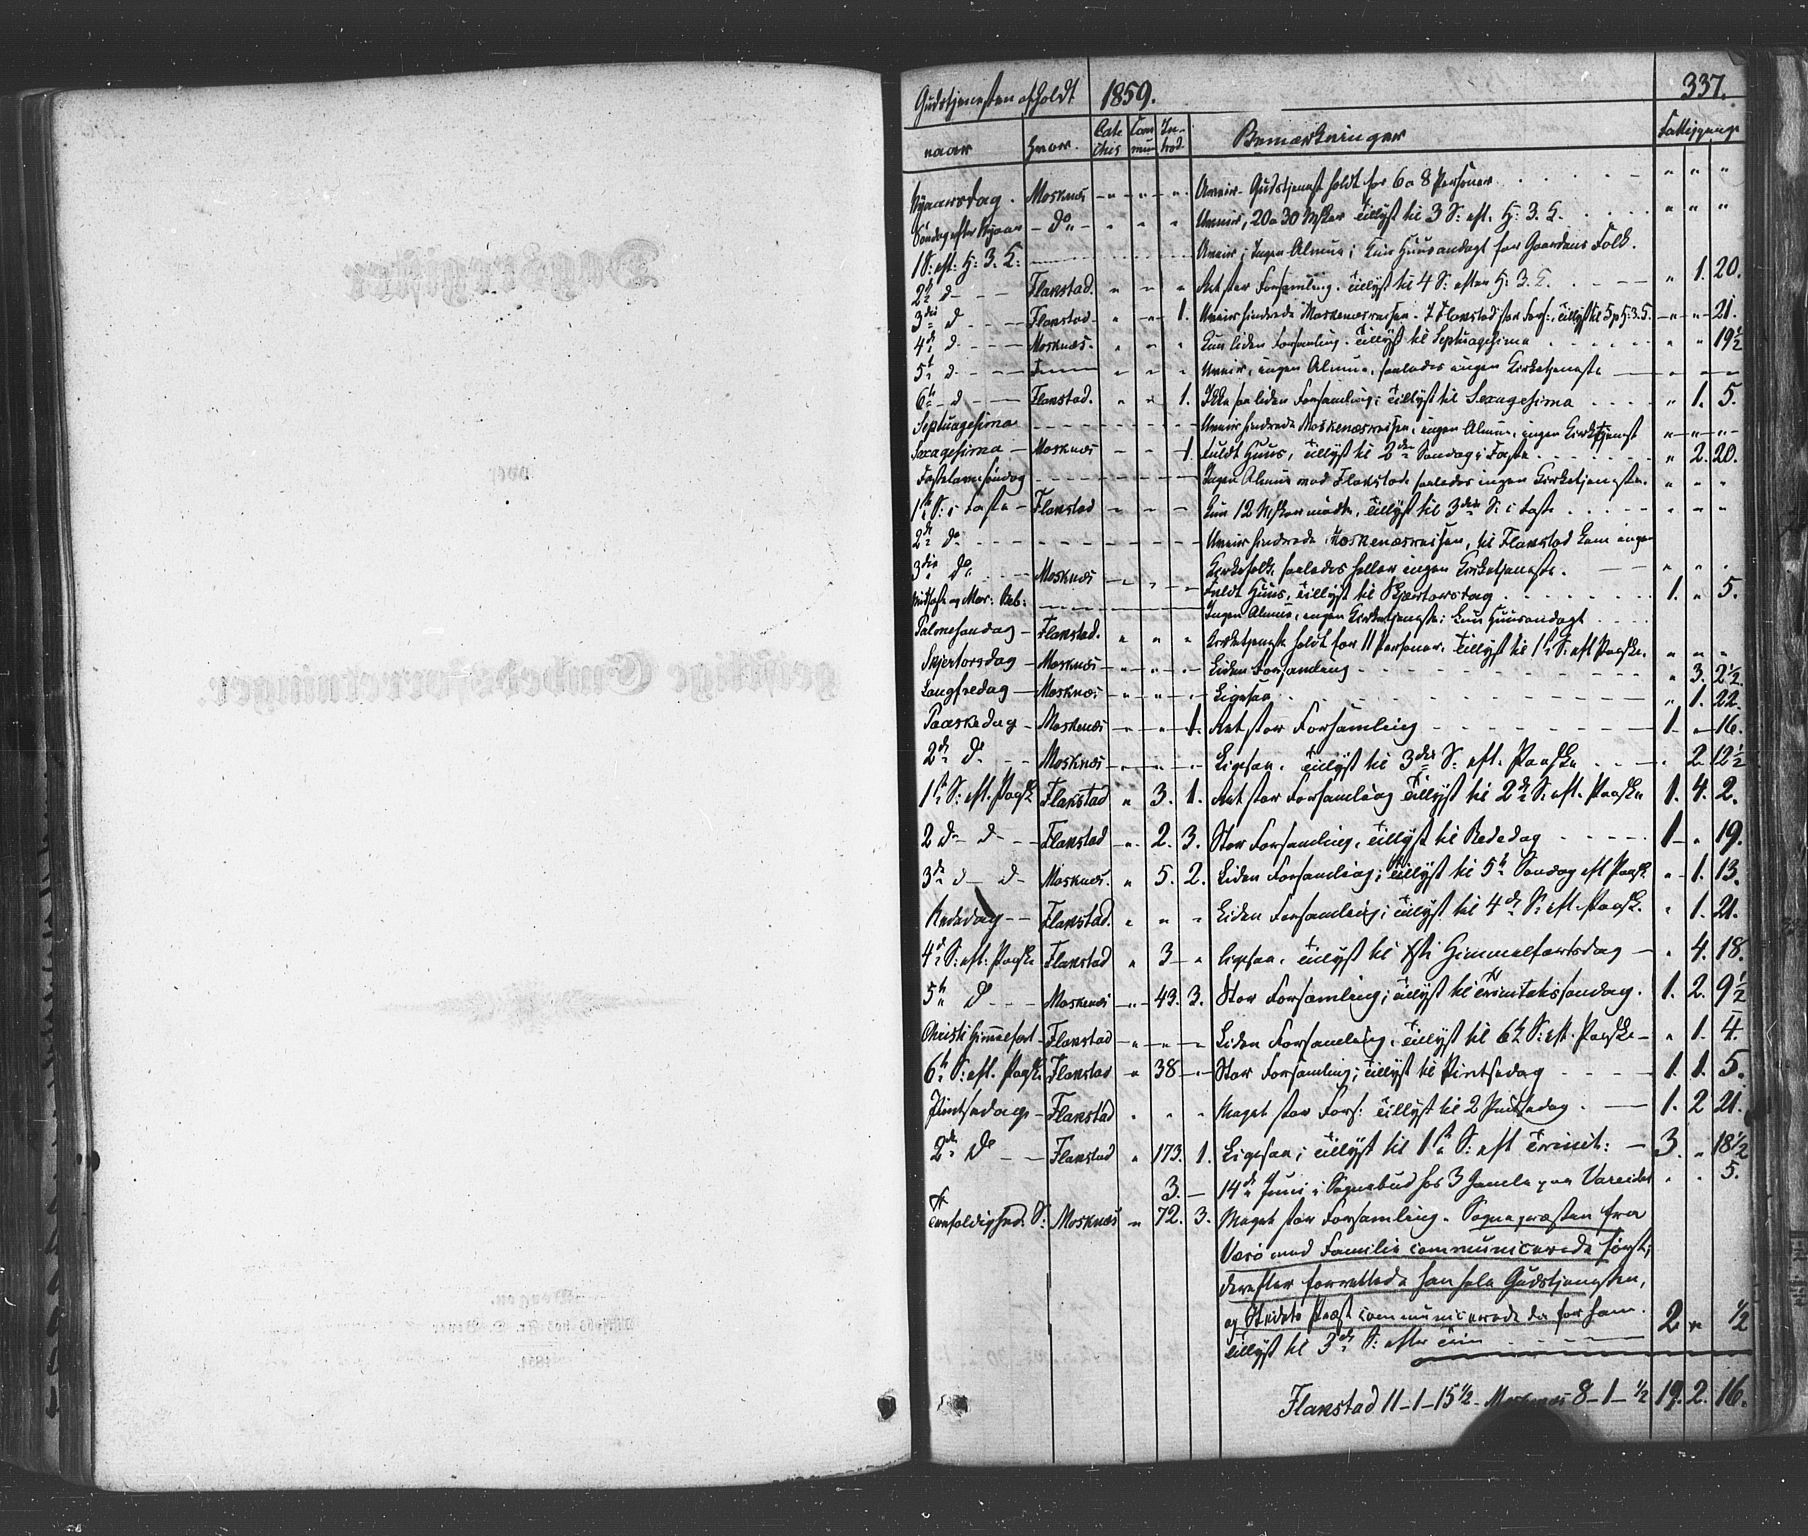 Gudstjenesten afholdt 1859. 337.
naar Hvor. Cate chis Com mun In- trod. Bemærkninger Fattigpenge
Nyaarsdag. Mosknæs Uveir. Gudstjenest holdt for 6 a 8 Personer.
Søndag efter Nyaar - do Uveir, 20 a 30 Msker tillyst til 3 S: eft. H: 3. K.
1 S: eft: H: 3. K: Uveir; Ingen Almue; kun Huusandagt for Gaardens Folk.
2den d Flakstad. Ret stor Forsamling. tillyst til 4 S: efter H: 3. K. " 1. 20.
3die d Flakstad 1. Uveir hindrede Moskenæsreisen. I Flakstad stor Fors:, tillyst til 5 p H: 3. K. 21.
4de d Mosknæs. Kun liden Forsamling. tillyst til Septuagesima 19½
5te d Uveir, ingen Almue, saaledes ingen Kirketjeneste
6te d Flakstad. 1. Ikke saa liden Forsamling; tillyst til Sexagesima " 1. 5.
Septuagesima Uveir hindrede Moskenæsreisen, ingen Almue, ingen Kirketjenest
Sexagesima - Moskenæs 1. Fuldt Huus, tillyst til 2den Søndag i Faste " 2. 20.
Fastelavnssøndag Ingen Almue mod Flakstad, saaledes ingen Kirketjeneste.
1ste S: i Faste - Flakstad Kun 12 Msker mødte, tillyst til 3die S: i Faste
2de do Uveir hindrede Moskenæsreisen, til Flakstad kom ingen
Kirkefolk, saaledes heller ingen Kirketjeneste.
3die do Mosknæs Fuldt Huus, tillyst til Skjertorsdag 1. " 5.
Midfaste og Mar: Beb: Ingen Almue, ingen Kirketjeneste; kun Huusandagt
Palmesøndag - Flakstad. Kirketjeneste holdt for 11 Personer. tillyst til 1ste S: eft Paaske.
Skjertorsdag - Mosknæs Liden Forsamling " 3. 2½.
Langfredag - Mosknæs Ligesaa " 1. 22.
Paaskedag - Moskenæs 1. Ret stor Forsamling 1 - 16.
2de do Mosknæs Ligesaa. tillyst til 3die S: eft. Paaske " 2. 12½
1ste S: eft. Paask Flakstad " 3. 1. Ret stor Forsamling tillyst til 2de S: eft. Paaske 1. 4. 2.
2 d - d - Flakstad 2. 3. Stor Forsamling, tillyst til Bededag 1 - " 19.
3de d - d - Mosknæs. " 5. 2. Liden Forsamling; tillyst til 5te Søndag eft Paask. " 1. 13.
Bededag - Flakstad. " " " Liden Forsamling; tillyst til 4de S: eft. Paask. " 1. 21.
4de S: eft. Paaske Flakstad " 3 - " Ligesaa. tillyst til Xsti Himmelfartsdag - " 4. 18.
5te do Mosknæs 43. 3. Stor Forsamling; tillyst til Trinitatissøndag. 1. 2. 9½
Christi Himmelfart - Flakstad Liden Forsamling, tillyst til 6te S: eft. Paaske - " 1. 4.
6te S: eft. Paaske Flakstad " 38 Stor Forsamling; tillyst til Pintsedag 1. 1. 5.
Pintsedag - Flakstad " " " Meget stor Fors: tillyst til 2 Pintsedag. - 1. 2 21.
2de do Flakstad " 173. 1. Ligesaa; tillyst til 1ste S: eft Trinit: - 3. " 18½
3. - 14de Juni i Sognebud hos 3 Gamle paa Vareidet " " 5.
Trefoldighed. S: Moskenæs " 72. 3. Meget stor Forsamling. Sognepræsten fra
Værø med Familie communicerede først;
derefter forrettede han hele Gudstjenesten,
og Stedets Præst communicerede da for ham.
tillyst til 3de S: efter Trin 2 " ½
Flakstad 11-1-15½. Moskenæs 8-1-½ 19. 2. 16.
Dagsregister
over
geistlige Embedsforretninger.
1851.